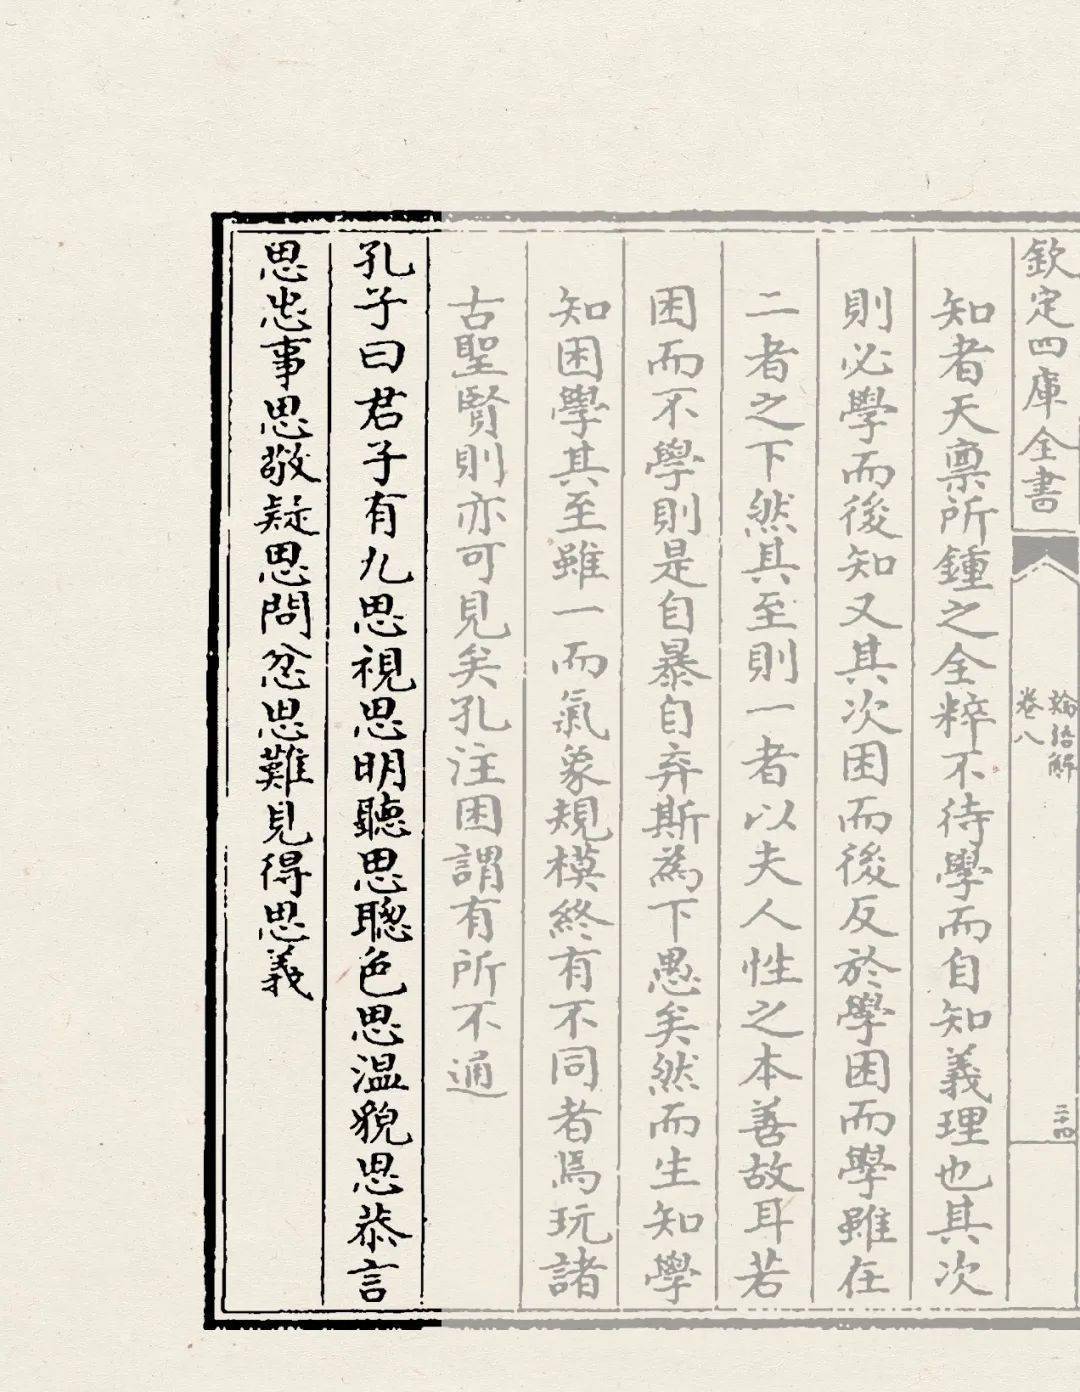 欽定四庫全書
論語解
卷八
二十四
知者天禀所鍾之全粹不待學而自知義理也其次
則必學而後知又其次困而後反於學困而學雖在
二者之下然其至則一者以夫人性之本善故耳若
困而不學則是自暴自弃斯為下愚矣然而生知學
知困學其至雖一而氣象規模終有不同者焉玩諸
古聖賢則亦可見矣孔注困謂有所不通
孔子曰君子有九思視思明聽思聰色思温貌思恭言
思忠事思敬疑思問忿思難見得思義